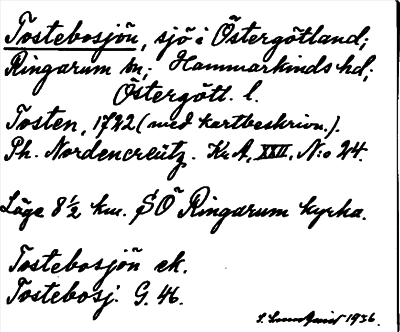 Tostebosjön, sjö i Östergötland;
Ringarum sn; Hammarkinds hd;
Östergötl. l.
Tosten, 1722 (med kartbeskrivn.).
Ph. Nordencreütz. KrA, XXII, N:o 24.
Läge 8½ km. SÖ Ringarum kyrka.
Tostebosjön ek.
Tostebosj. G. 46.
1936.